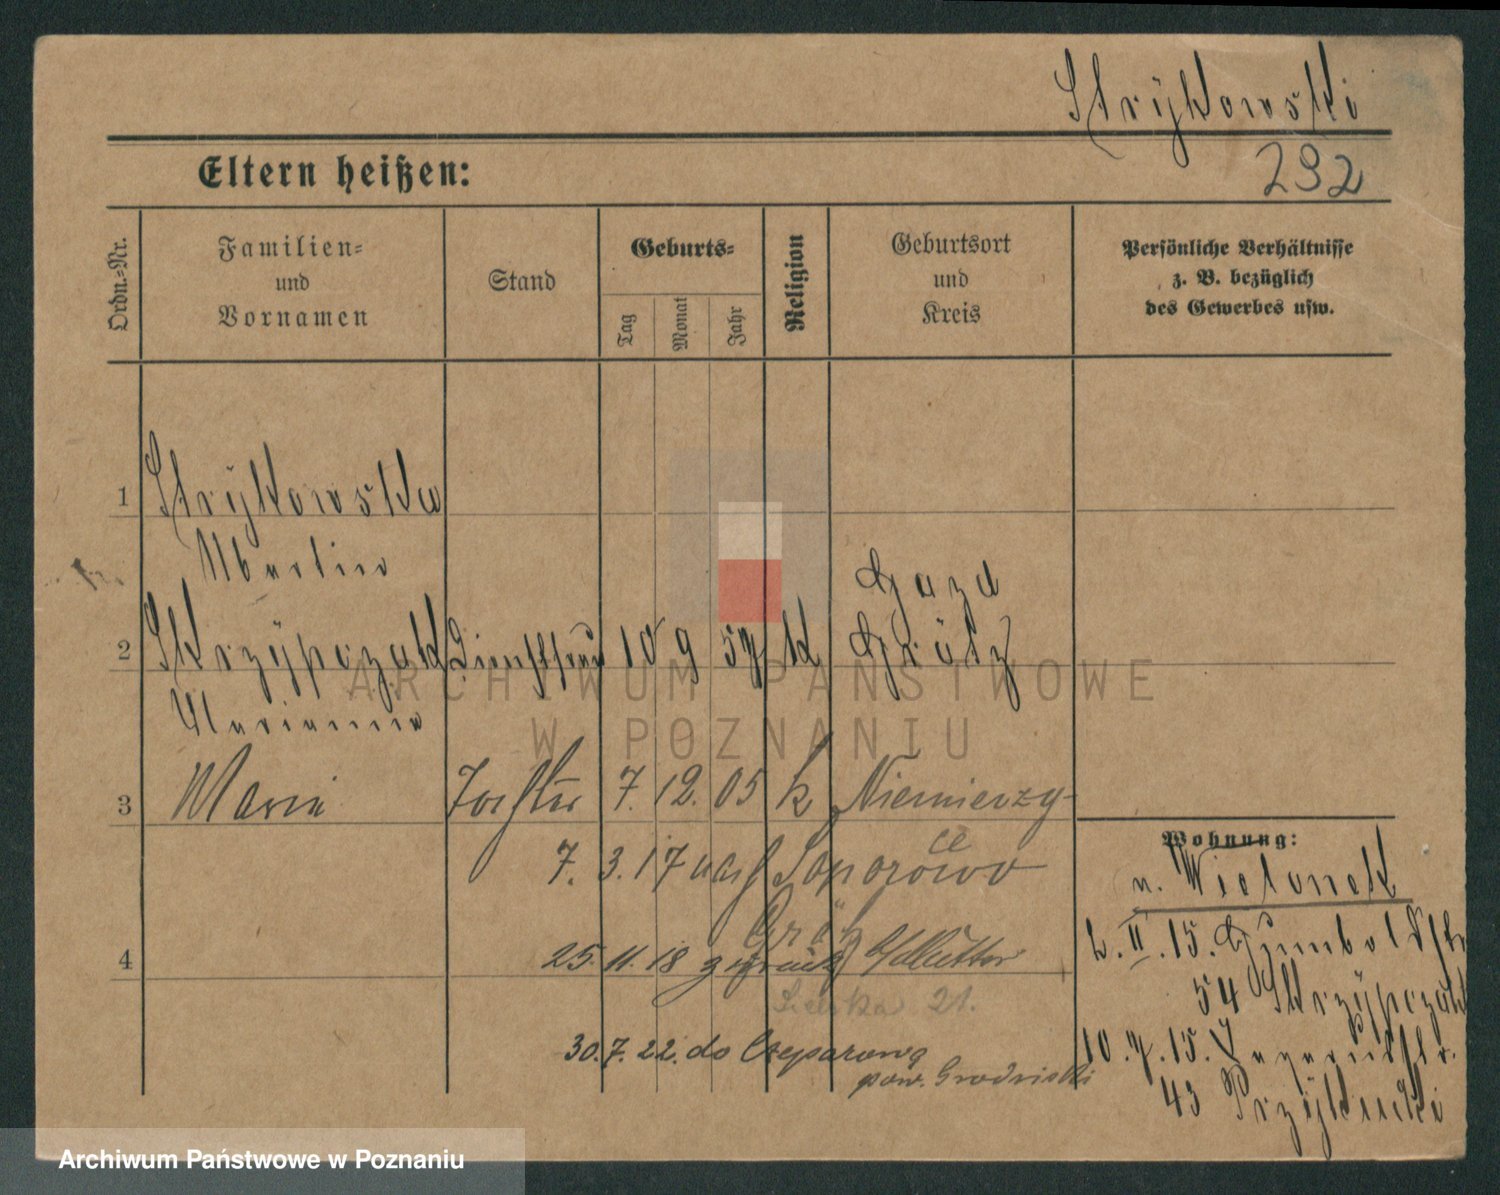 Strykowski
292
Eltern heißen:
Ordn.=Nr.
Familien=
und
Vornamen
Stand
Geburts=
Tag
Monat
Jahr
Religion
Geburtsort
und
Kreis
Persönliche Verhältnisse
z. B. bezüglich
des Gewerbes usw.
1 Strykowska
2 Skrzypczak 10 9 57 k Grätz
Marianna
3 Maria Tochter 7. 12. 05 k Niemierzy-
ce
7. 3. 17 nach Soporowo
Grätz
4 25. 11. 18 zurück z/Mutter
21.
30. 7. 22. do
pow. Grodziski
Wohnung:
n. Wielonek
2. II. 15.
54 Skrzypczak
10. 7. 15.
43
ARCHIWUM PAŃSTWOWE
W POZNANIU
Archiwum Państwowe w Poznaniu